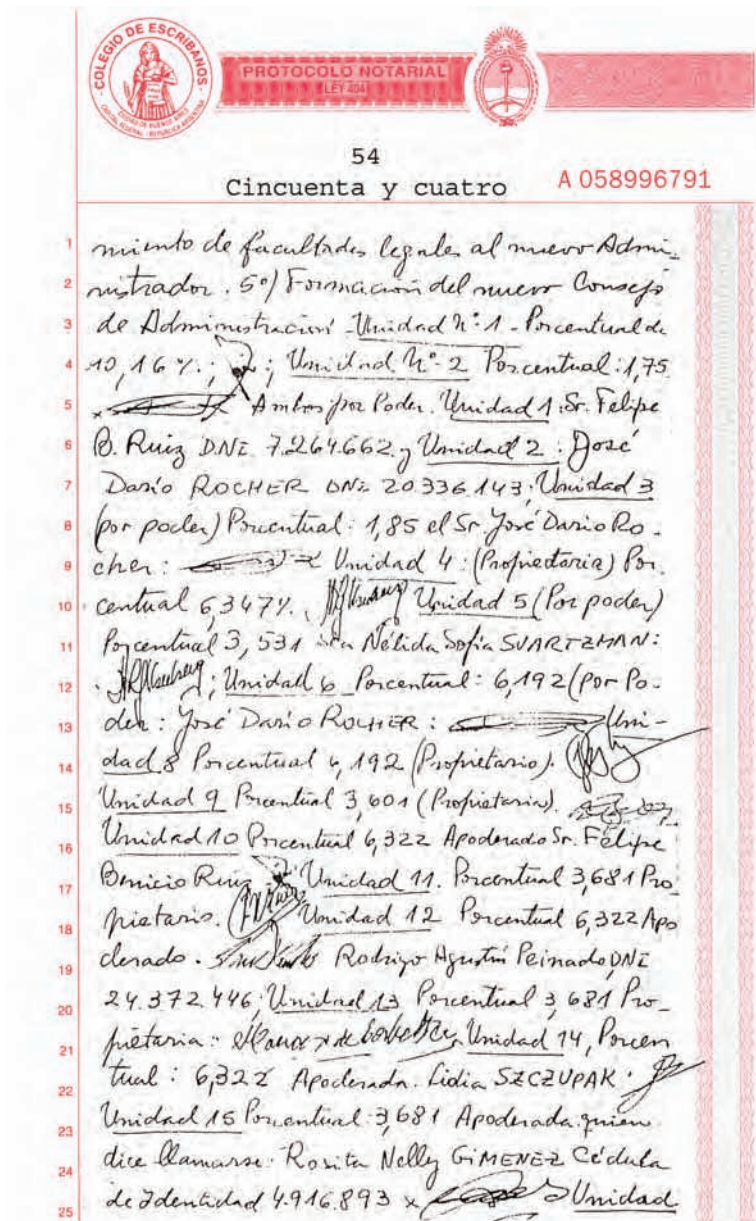 COLEGIO DE ESCRIBANOS
CIUDAD DE BUENOS AIRES
CAPITAL FEDERAL - REPUBLICA ARGENTINA
PROTOCOLO NOTARIAL
LEY 404
54
Cincuenta y cuatro
A 058996791
1 miento de facultades legales al nuevo Admi-
2 nistrador. 5º) Formación del nuevo Consejo
3 de Administración - Unidad Nº 1 - Porcentual de
4 10,16 %.; ; Unidad Nº 2 Porcentual: 1,75
5 x Ambos por Poder. Unidad 1: Sr. Felipe
6 B. Ruiz DNI 7.264.662 y Unidad 2: José
7 Darío ROCHER DNI 20.336.143; Unidad 3
8 (por poder) Porcentual: 1,85 el Sr José Darío Ro-
9 cher: Unidad 4: (Propietaria) Por-
10 centual 6,347%. Unidad 5 (Por poder)
11 Porcentual 3,531 Nélida Sofía SVARTZMAN:
12 ; Unidad 6 Porcentual: 6,192 (por Po-
13 der: José Darío ROCHER: Uni-
14 dad 8 Porcentual 6,192 (Propietario).
15 Unidad 9 Porcentual 3,601 (Propietaria).
16 Unidad 10 Porcentual 6,322 Apoderado Sr. Felipe
17 Benicio Ruiz Unidad 11. Porcentual 3,681 Pro
18 pietario. Unidad 12 Porcentual 6,322 Apo
19 derado. Rodrigo Agustín Peinado DNI
20 24.372.446; Unidad 13 Porcentual 3,681 Pro-
21 pietaria: Unidad 14, Porcen
22 tual: 6,322 Apoderada. Lidia SZCZUPAK.
23 Unidad 15 Porcentual: 3,681 Apoderada quien
24 dice llamarse: Rosita Nelly GIMENEZ Cédula
25 de Identidad 4.916.893 x Unidad